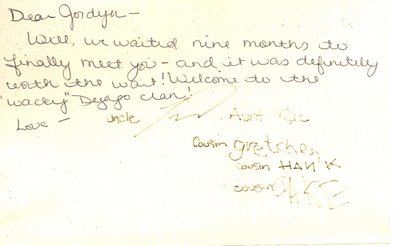 Dear Jordyn -
Will, we waited nine months to
finally meet you - and it was definitely
worth the wait! Welcome to the
"wacky" clan!
Love - uncle Aunt
Cousin gretchen
cousin HANK
cousin